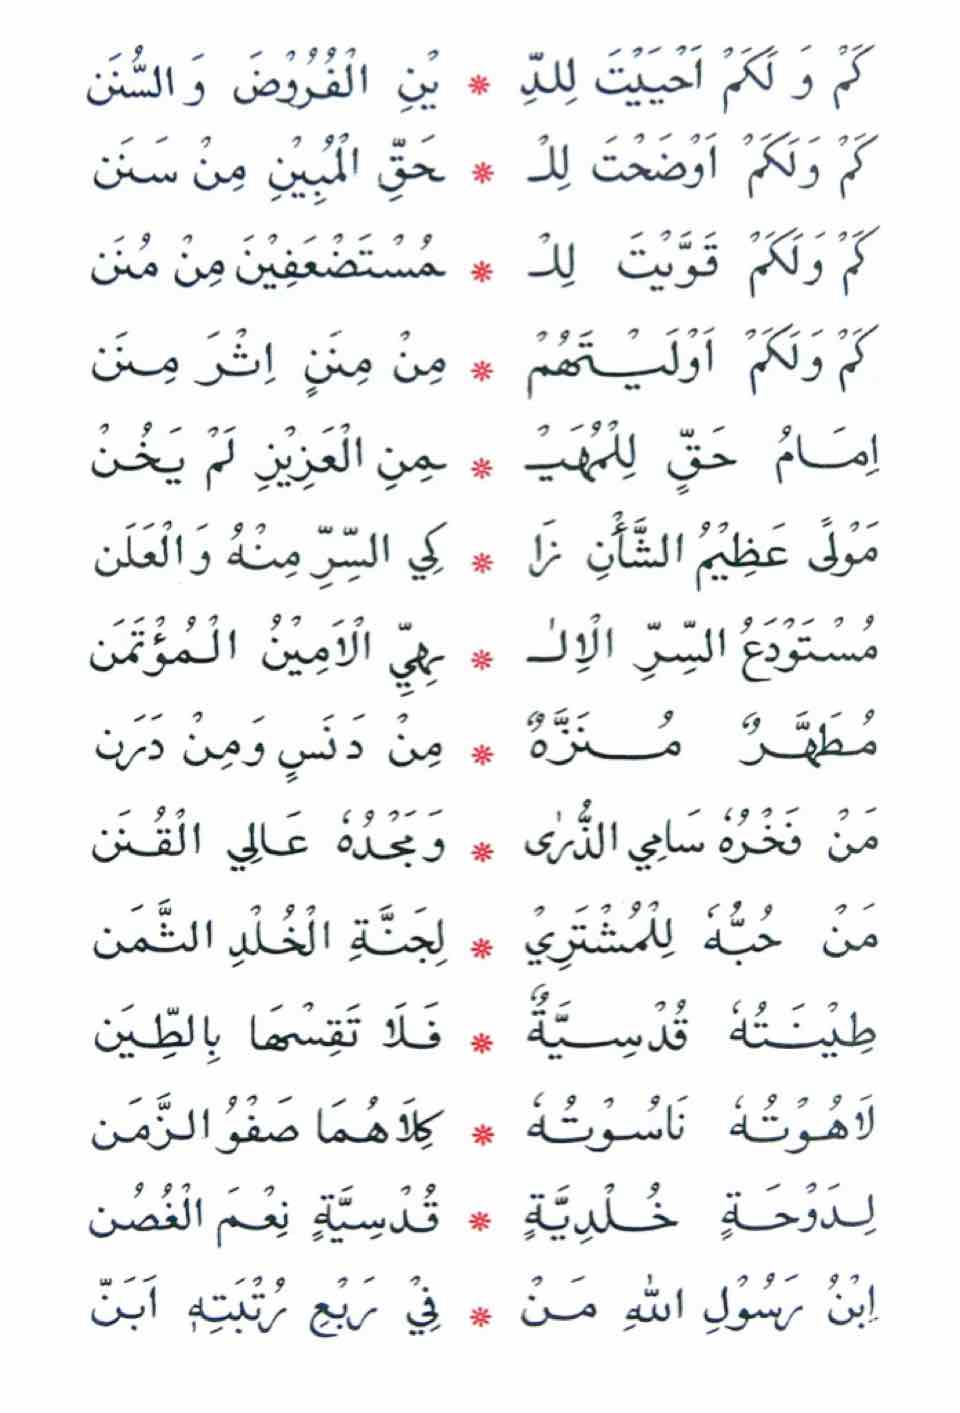 كَمْ وَ لَكَمْ اَحْيَيْتَ لِلدِّ * يْنِ الْفُرُوْضَ وَ السُّنَن
كَمْ وَلَكَمْ اَوْضَحْتَ لِلْـ * ـحَقِّ الْمُبِيْنِ مِنْ سَنَن
كَمْ وَلَكَمْ قَوَّيْتَ لِلْـ * ـمُسْتَضْعَفِيْنَ مِنْ مُنَن
كَمْ وَلَكَمْ اَوْلَيْتَهُمْ * مِنْ مِنَنٍ اِثْرَ مِنَن
اِمَامُ حَقٍّ لِلْمُهَيْـ * ـمِنِ الْعَزِيْزِ لَمْ يَخُنْ
مَوْلًى عَظِيْمُ الشَّأْنِ زَا * كِي السِّرِّ مِنْهُ وَالْعَلَن
مُسْتَوْدَعُ السِّرِّ الْاِلٰـ * ـهِيِّ الْاَمِيْنُ الْمُؤْتَمَن
مُطَهَّرٌ مُنَزَّهٌ * مِنْ دَنَسٍ وَمِنْ دَرَن
مَنْ فَخْرُهٗ سَامِي الذُّرٰى * وَمَجْدُهٗ عَالِي الْقُنَن
مَنْ حُبُّهٗ لِلْمُشْتَرِيْ * لِجَنَّةِ الْخُلْدِ الثَّمَن
طِيْنَتُهٗ قُدْسِيَّةٌ * فَلَا تَقِسْهَا بِالطِّيَن
لَاهُوْتُهٗ نَاسُوْتُهٗ * كِلَاهُمَا صَفْوُ الزَّمَن
لِدَوْحَةٍ خُلْدِيَّةٍ * قُدْسِيَّةٍ نِعْمَ الْغُصُن
اِبْنُ رَسُوْلِ اللهِ مَنْ * فِيْ رَبْعِ رُتْبَتِهٖ اَبَنّ